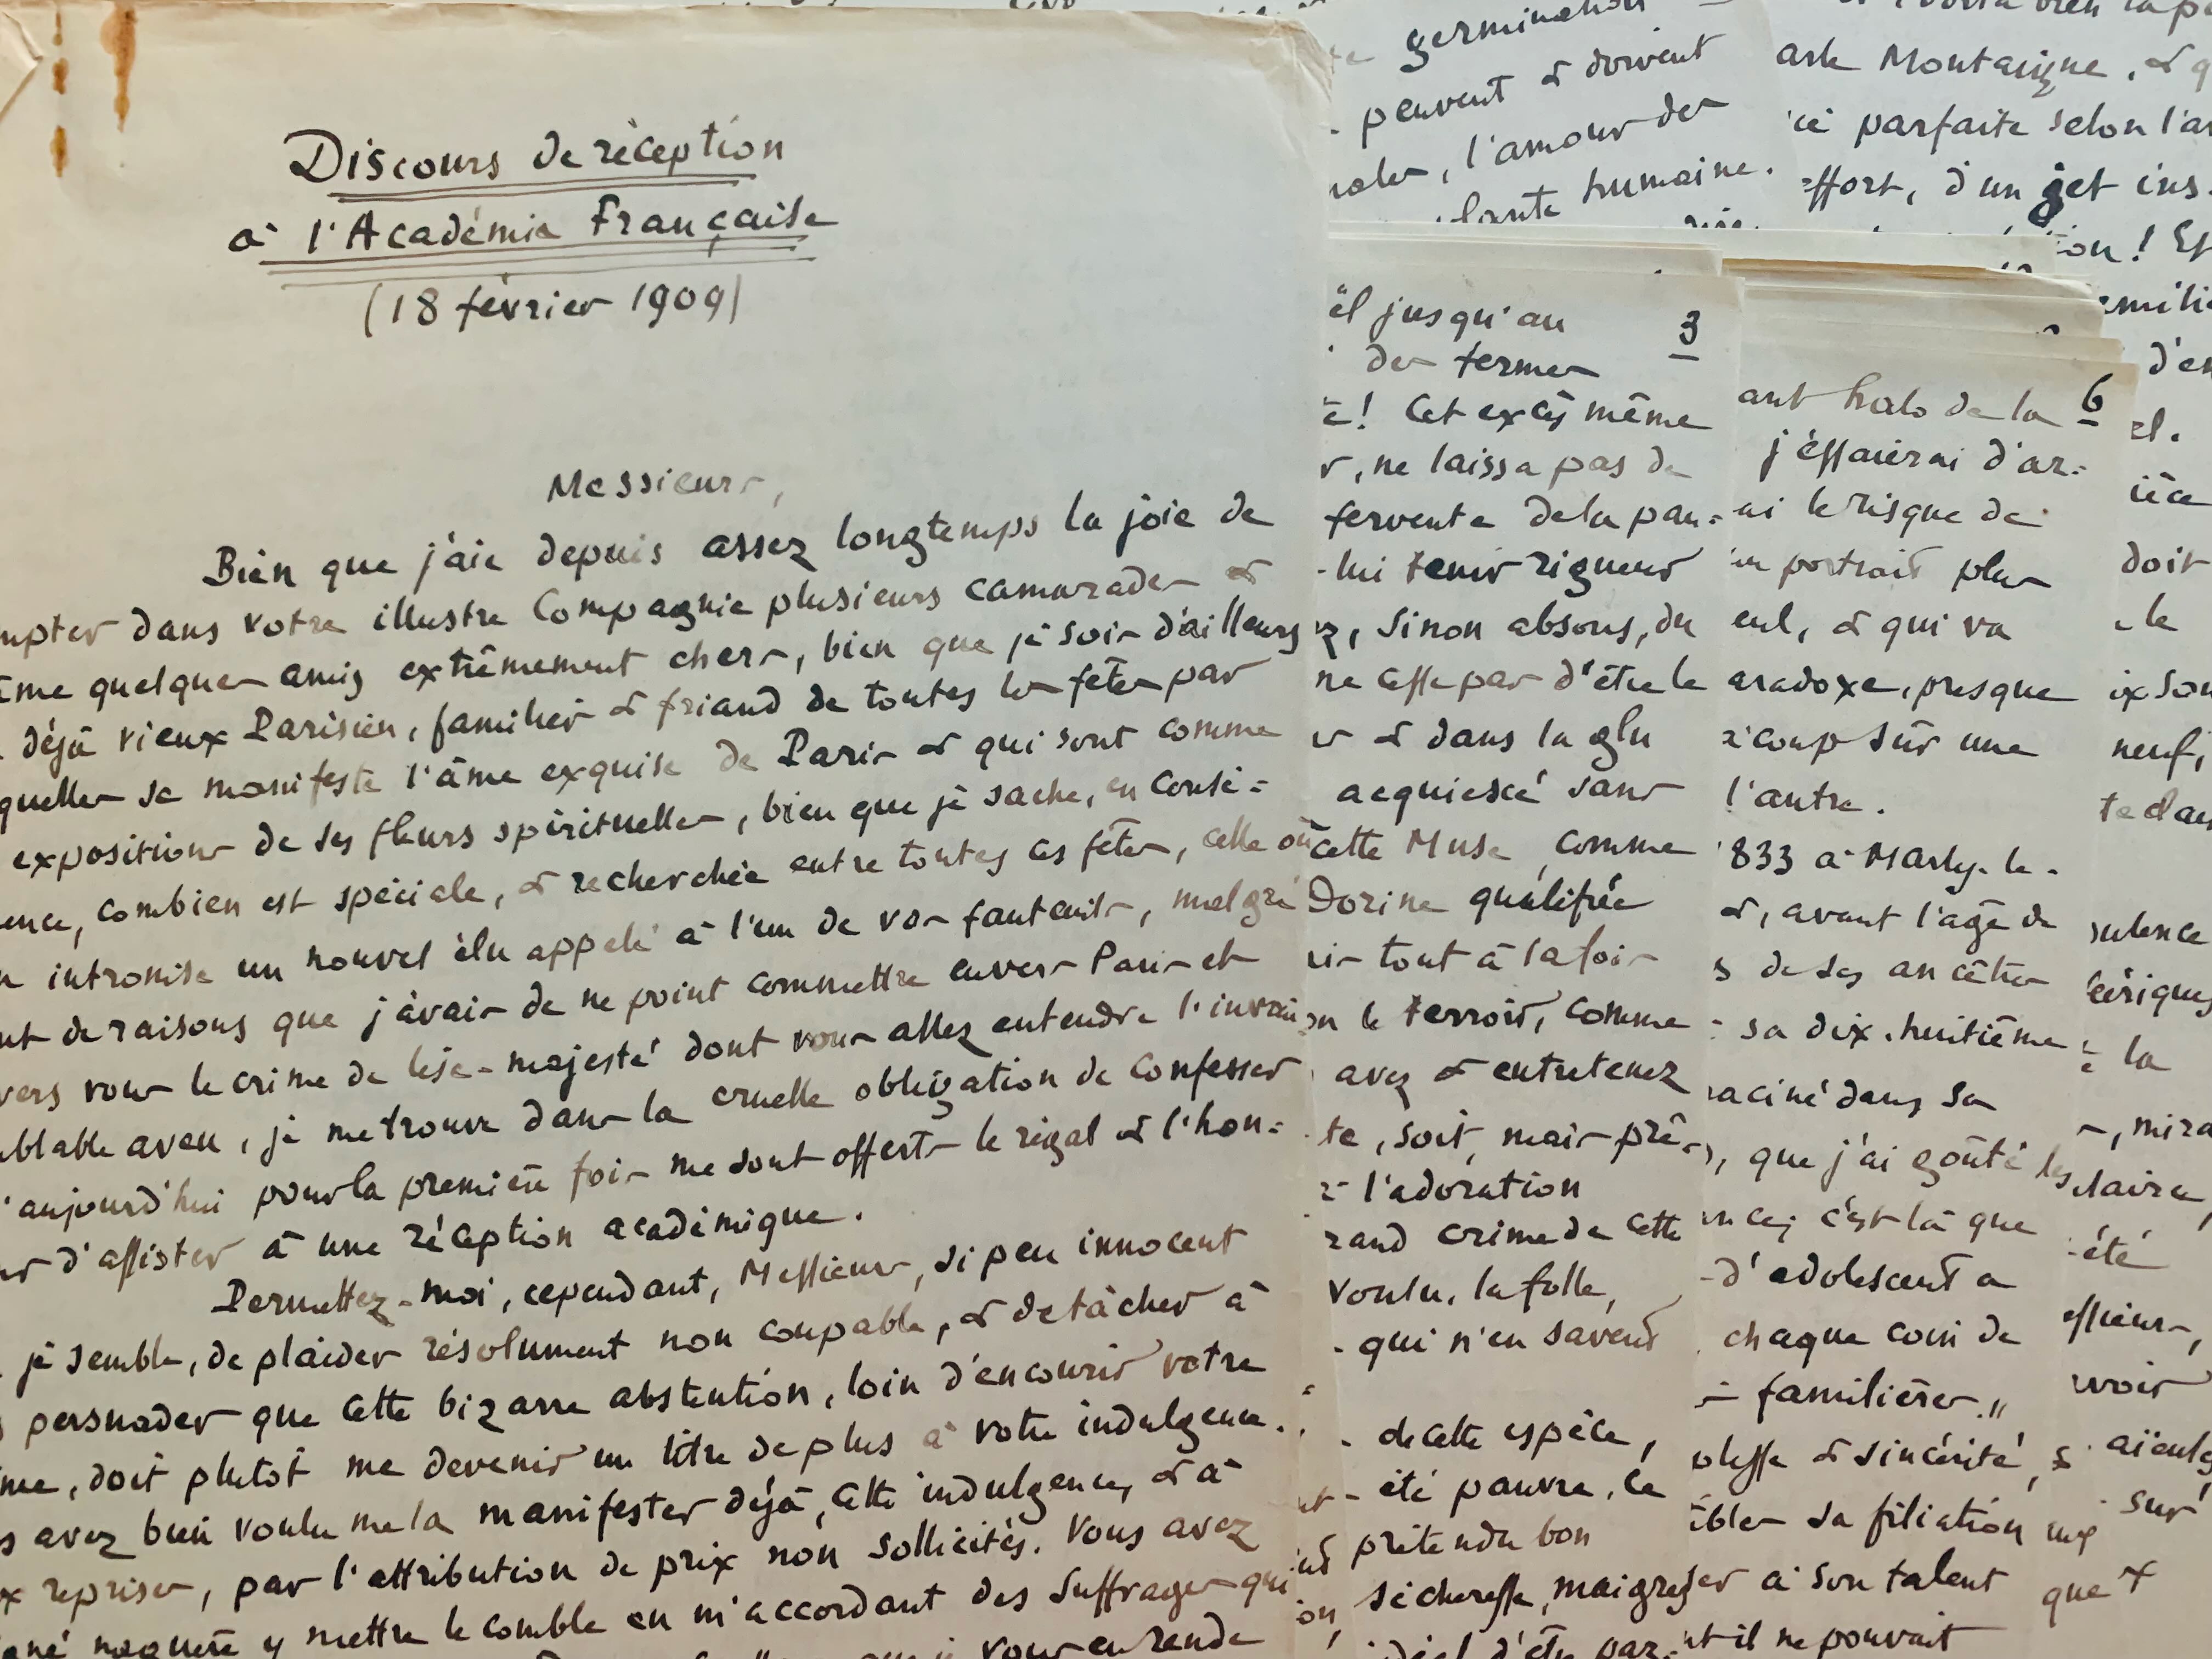 Discours de réception
à l'Académie Française
(18 février 1909)
Messieurs,
Bien que j'aie depuis assez longtemps la joie de
mpter dans votre illustre Compagnie plusieurs camarades &
ême quelques amis extrêmement chers, bien que je sois d'ailleurs
déjà vieux Parisien, familier & friand de toutes les fêtes par
quelles se manifeste l'âme exquise de Paris & qui sont comme
expositions de ses fleurs spirituelles, bien que je sache, en consé=
ence, combien est spéciale, & recherchée entre toutes ces fêtes, celle où
intronise un nouvel élu appelé à l'un de vos fauteuils, malgré
nt de raisons que j'avais de ne point commettre envers Paris et
vers vous le crime de lèse-majesté dont vous allez entendre l'invrai
blable aveu, je me trouve dans la cruelle obligation de confesser
'aujourd'hui pour la première fois me sont offerts le régal & l'hon=
ur d'assister à une réception académique.
Permettez-moi, cependant, Messieurs, si peu innocent
je semble, de plaider résolument non coupable, & de tâcher à
persuader que cette bizarre abstention, loin d'encourir votre
me, doit plutôt me devenir un titre de plus à votre indulgence.
s avez bien voulu me la manifester déjà, cette indulgence, & à
x reprises, par l'attribution de prix non sollicités. Vous avez
gné naguère y mettre le comble en m'accordant des suffrages qui
vous en rende
germination
peuvent & doivent
nales, l'amour des
lante humaine.
la p
arle Montaigne, & q
parfaite selon l'ar
effort, d'un jet ins
on ! Et
emili
d'en
3
ël jusqu'au
des termes
é! Cet excès même
r, ne laissa pas de
fervente de la pau=
lui tenir rigueur
z, sinon absous, du
ne cesse pas d'être le
& dans la glu
acquiescé sans
cette Muse, comme
Dorine qualifiée
tout à la fois
on le terroir, comme
avez & entretenez
te, soit, mais prê-
l'adoration
rand crime de cette
voulu, la folle,
qui n'en savent
de cette espèce,
été pauvre, le
prétendu bon
sécheresse, maigre
d'être par
6
ant halo de la
j'essaierai d'ar=
ai le risque de
un portrait plus
eul, & qui va
aradoxe, presque
coup sûr une
l'autre.
1833 à Marly-le-
&, avant l'âge de
s de ses ancêtres
sa dix-huitième
raciné dans sa
, que j'ai goûté les
ces; c'est là que
d'adolescent a
chaque coin de
familières."
plesse & sincérité,
ibles sa filiation
ser à son talent
nt il ne pouvait
el.
ièce
doit
le
ix son
neuf,
te dan
ulence
éériques
la
, mira
claire,
été
essieurs,
voir
aïeuls
sur
que